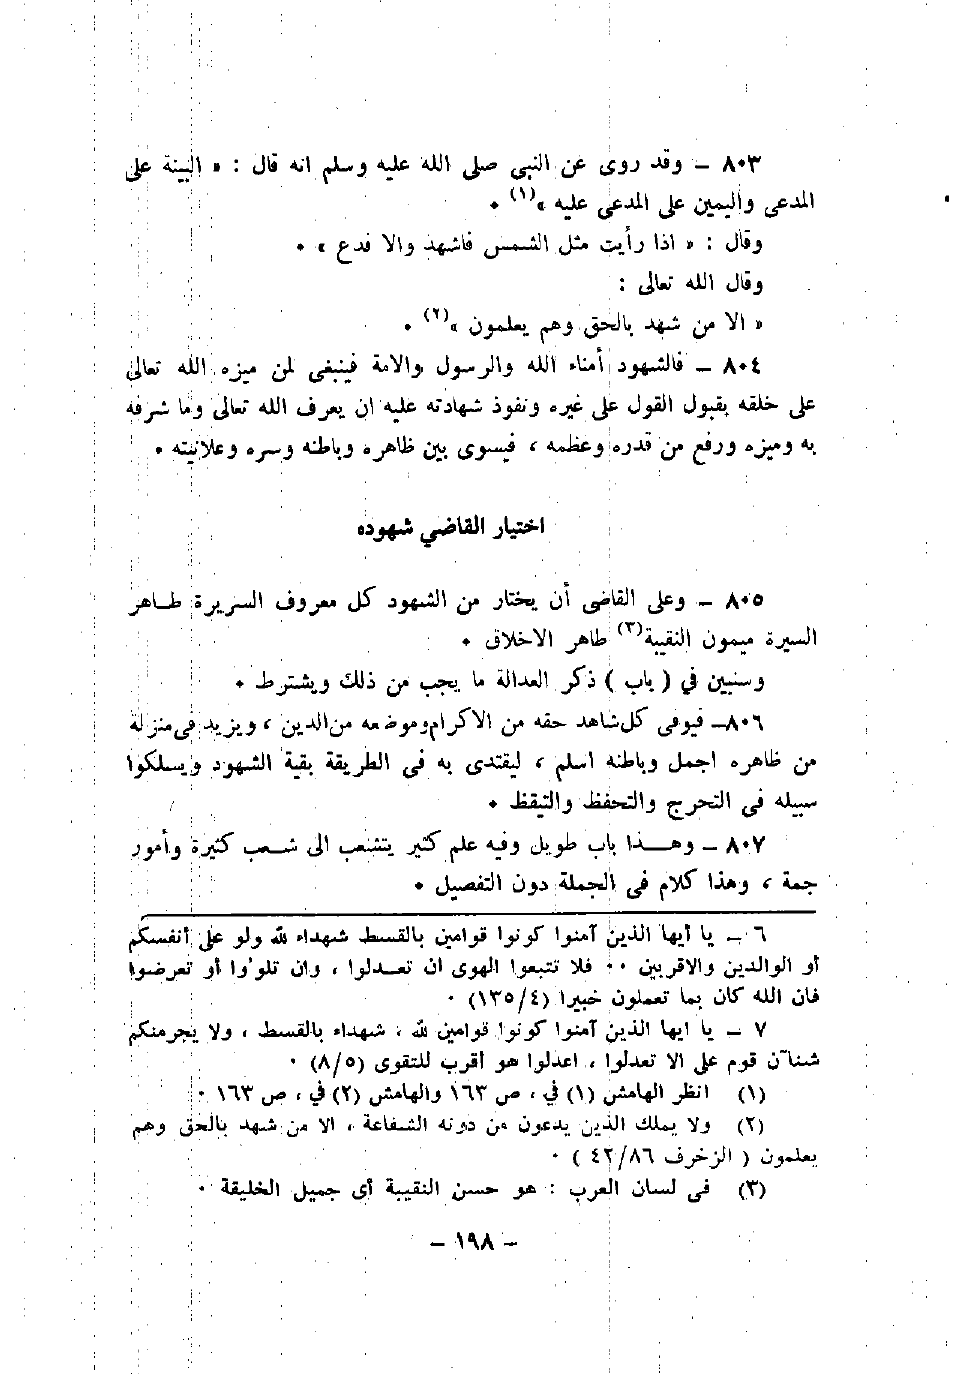 ٨٠٣ ــ وقد روى عن النبي صلى الله عليه وسلم انه قال : « البينة على
المدعى واليمين على المدعى عليه »(١) •
وقال : « اذا رأيت مثل الشمس فاشهد والا فدع » •
وقال الله تعالى :
« الا من شهد بالحق وهم يعلمون »(٢) •
٨٠٤ ــ فالشهود أمناء الله والرسول والامة فينبغى لمن ميزه الله تعالى
على خلقه بقبول القول على غيره ونفوذ شهادته عليه ان يعرف الله تعالى وما شرفه
به وميزه ورفع من قدره وعظمه ، فيسوى بين ظاهره وباطنه وسره وعلانيته •
اختيار القاضي شهوده
٨٠٥ ــ وعلى القاضى أن يختار من الشهود كل معروف السريرة طـاهر
السيرة ميمون النقيبة(٣) طاهر الاخلاق •
وسنبين في ( باب ) ذكر العدالة ما يجب من ذلك ويشترط •
٨٠٦ــ فيوفى كل شاهد حقه من الاكرام وموضعه من الدين ، ويزيد فى منزلة
من ظاهره اجمل وباطنه اسلم ، ليقتدى به فى الطريقة بقية الشهود ويسلكوا
سبيله فى التحرج والتحفظ والتيقظ •
٨٠٧ ــ وهـــذا باب طويل وفيه علم كثير يتشعب الى شـعب كثيرة وأمور
جمة ، وهذا كلام فى الجملة دون التفصيل •
٦ ــ يا أيها الذين آمنوا كونوا قوامين بالقسط شهداء لله ولو على أنفسكم
أو الوالدين والاقربين ٠٠ فلا تتبعوا الهوى ان تعـدلوا ، وان تلوءوا أو تعرضوا
فان الله كان بما تعملون خبيرا (١٣٥/٤) •
٧ ــ يا ايها الذين آمنوا كونوا قوامين لله ، شهداء بالقسط ، ولا يجرمنكم
شنآن قوم على الا تعدلوا ، اعدلوا هو أقرب للتقوى (٨/٥) •
(١) انظر الهامش (١) في ، ص ١٦٣ والهامش (٢) في ، ص ١٦٣ •
(٢) ولا يملك الذين يدعون من دونه الشفاعة ، الا من شهد بالحق وهم
يعلمون ( الزخرف ٤٢/٨٦ ) •
(٣) فى لسان العرب : هو حسن النقيبة أى جميل الخليقة •
ــ ١٩٨ ــ